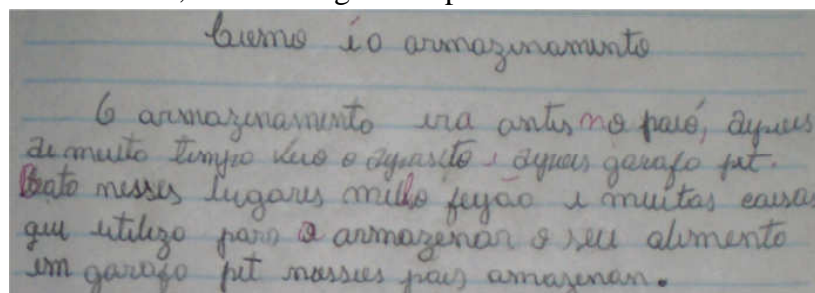 Cuomo é o armazinamento
O armazinamento era antes no paió, dypues
de muito tempo veio o dyposito, dypues garafo pet.
Bato nesses lugares milho feyão e muitas causas
que utilizo para o armazenar o seu alimento
em garafo pet nessies pais amazenan.